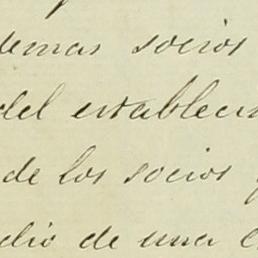 demas socios
del establecim
de los socios
dio de una c